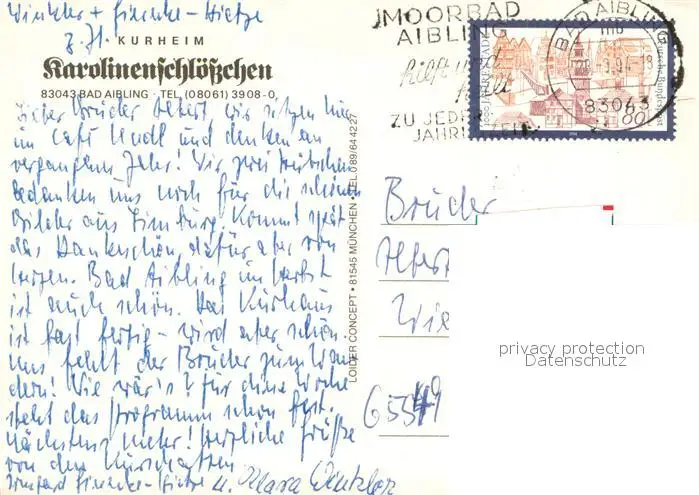 Winkler + Finenke-Hietze
z. Zt. KURHEIM
Karolinenschlößchen
83043 BAD AIBLING · TEL. (08061) 3908-0,
Lieber Bruder Albert, wir sitzen hier
im Café und denken an
vergangenes Jahr! Wir zwei Hübschen
bedanken uns noch für die schönen
Bilder aus Limburg. Kommt spät
das Dankeschön, dafür aber von
Herzen. Bad Aibling im Herbst
ist auch schön. Das Kurhaus
ist fast fertig - wird aber schön.
Uns fehlt der Bruder zum Wan
dern! Wie wär's? Für diese Woche
steht das Programm schon fest.
Nächstens mehr! Herzliche Grüße
von den Kurschatten
Irmgard Finenke-Hietze u. Klara Winkler
LOIDER CONCEPT · 81545 MÜNCHEN · TEL. 0 89/64 42 27
MOORBAD
AIBLING
hilft und
heilt
ZU JEDER
JAHRESZEIT
BAD AIBLING
mb
83043
80
Deutsche Bundespost
Bruder
Albert
Wie
65549
privacy protection
Datenschutz